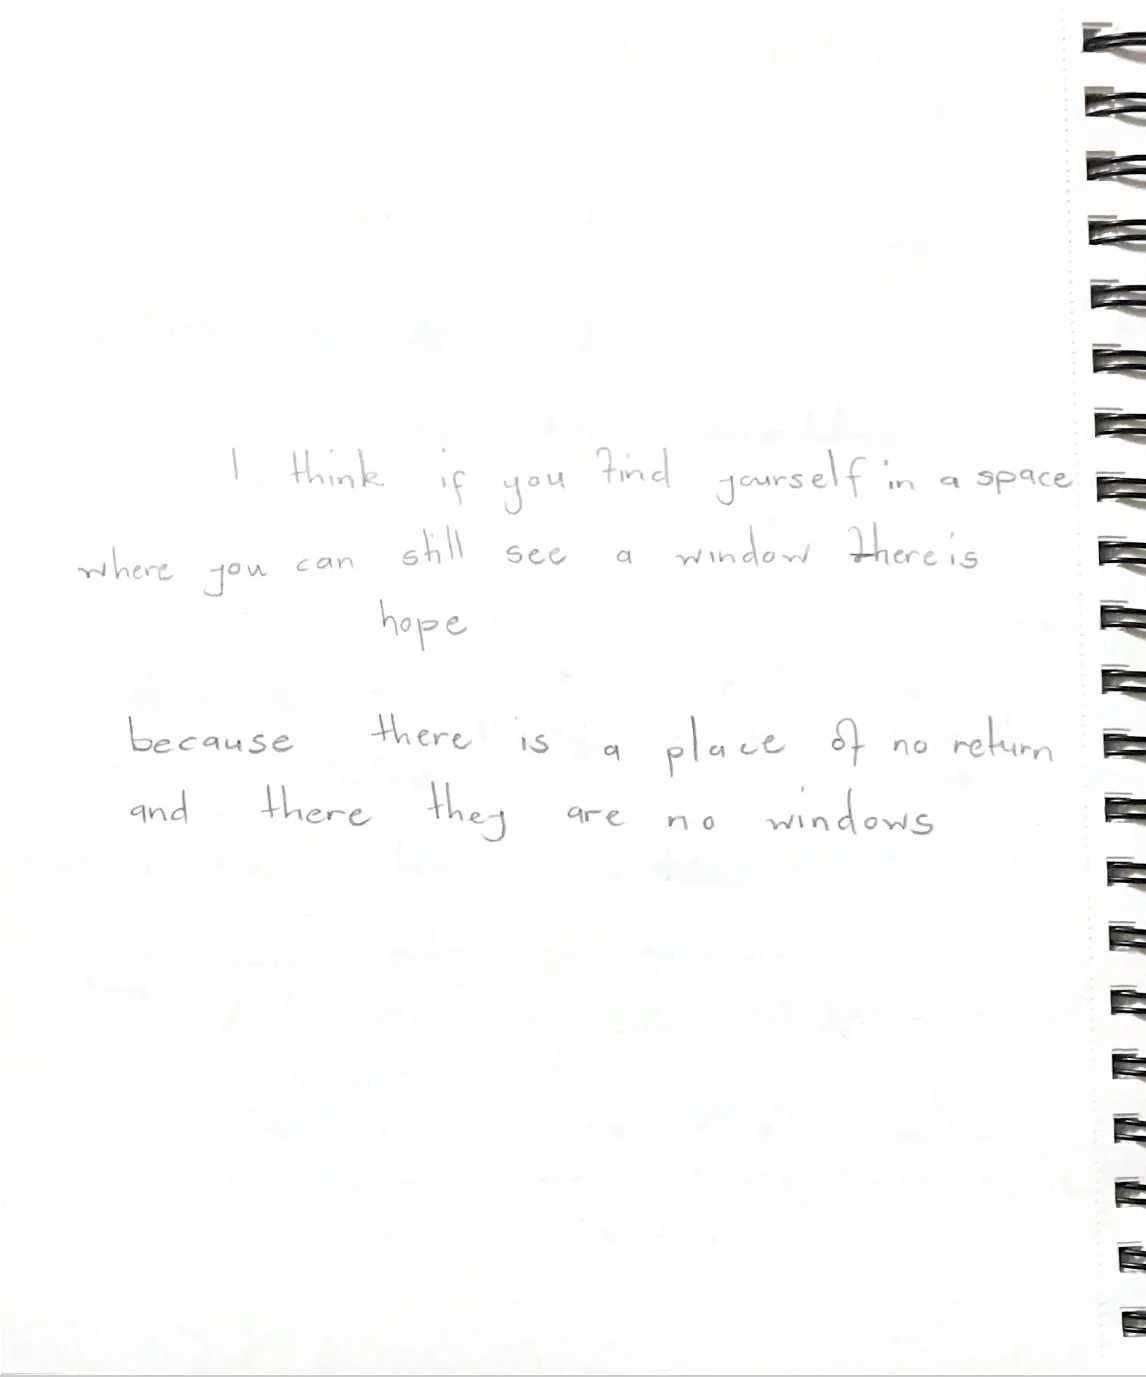 I think if you find yourself in a space
where you can still see a window there is
hope
because there is a place of no return
and there they are no windows